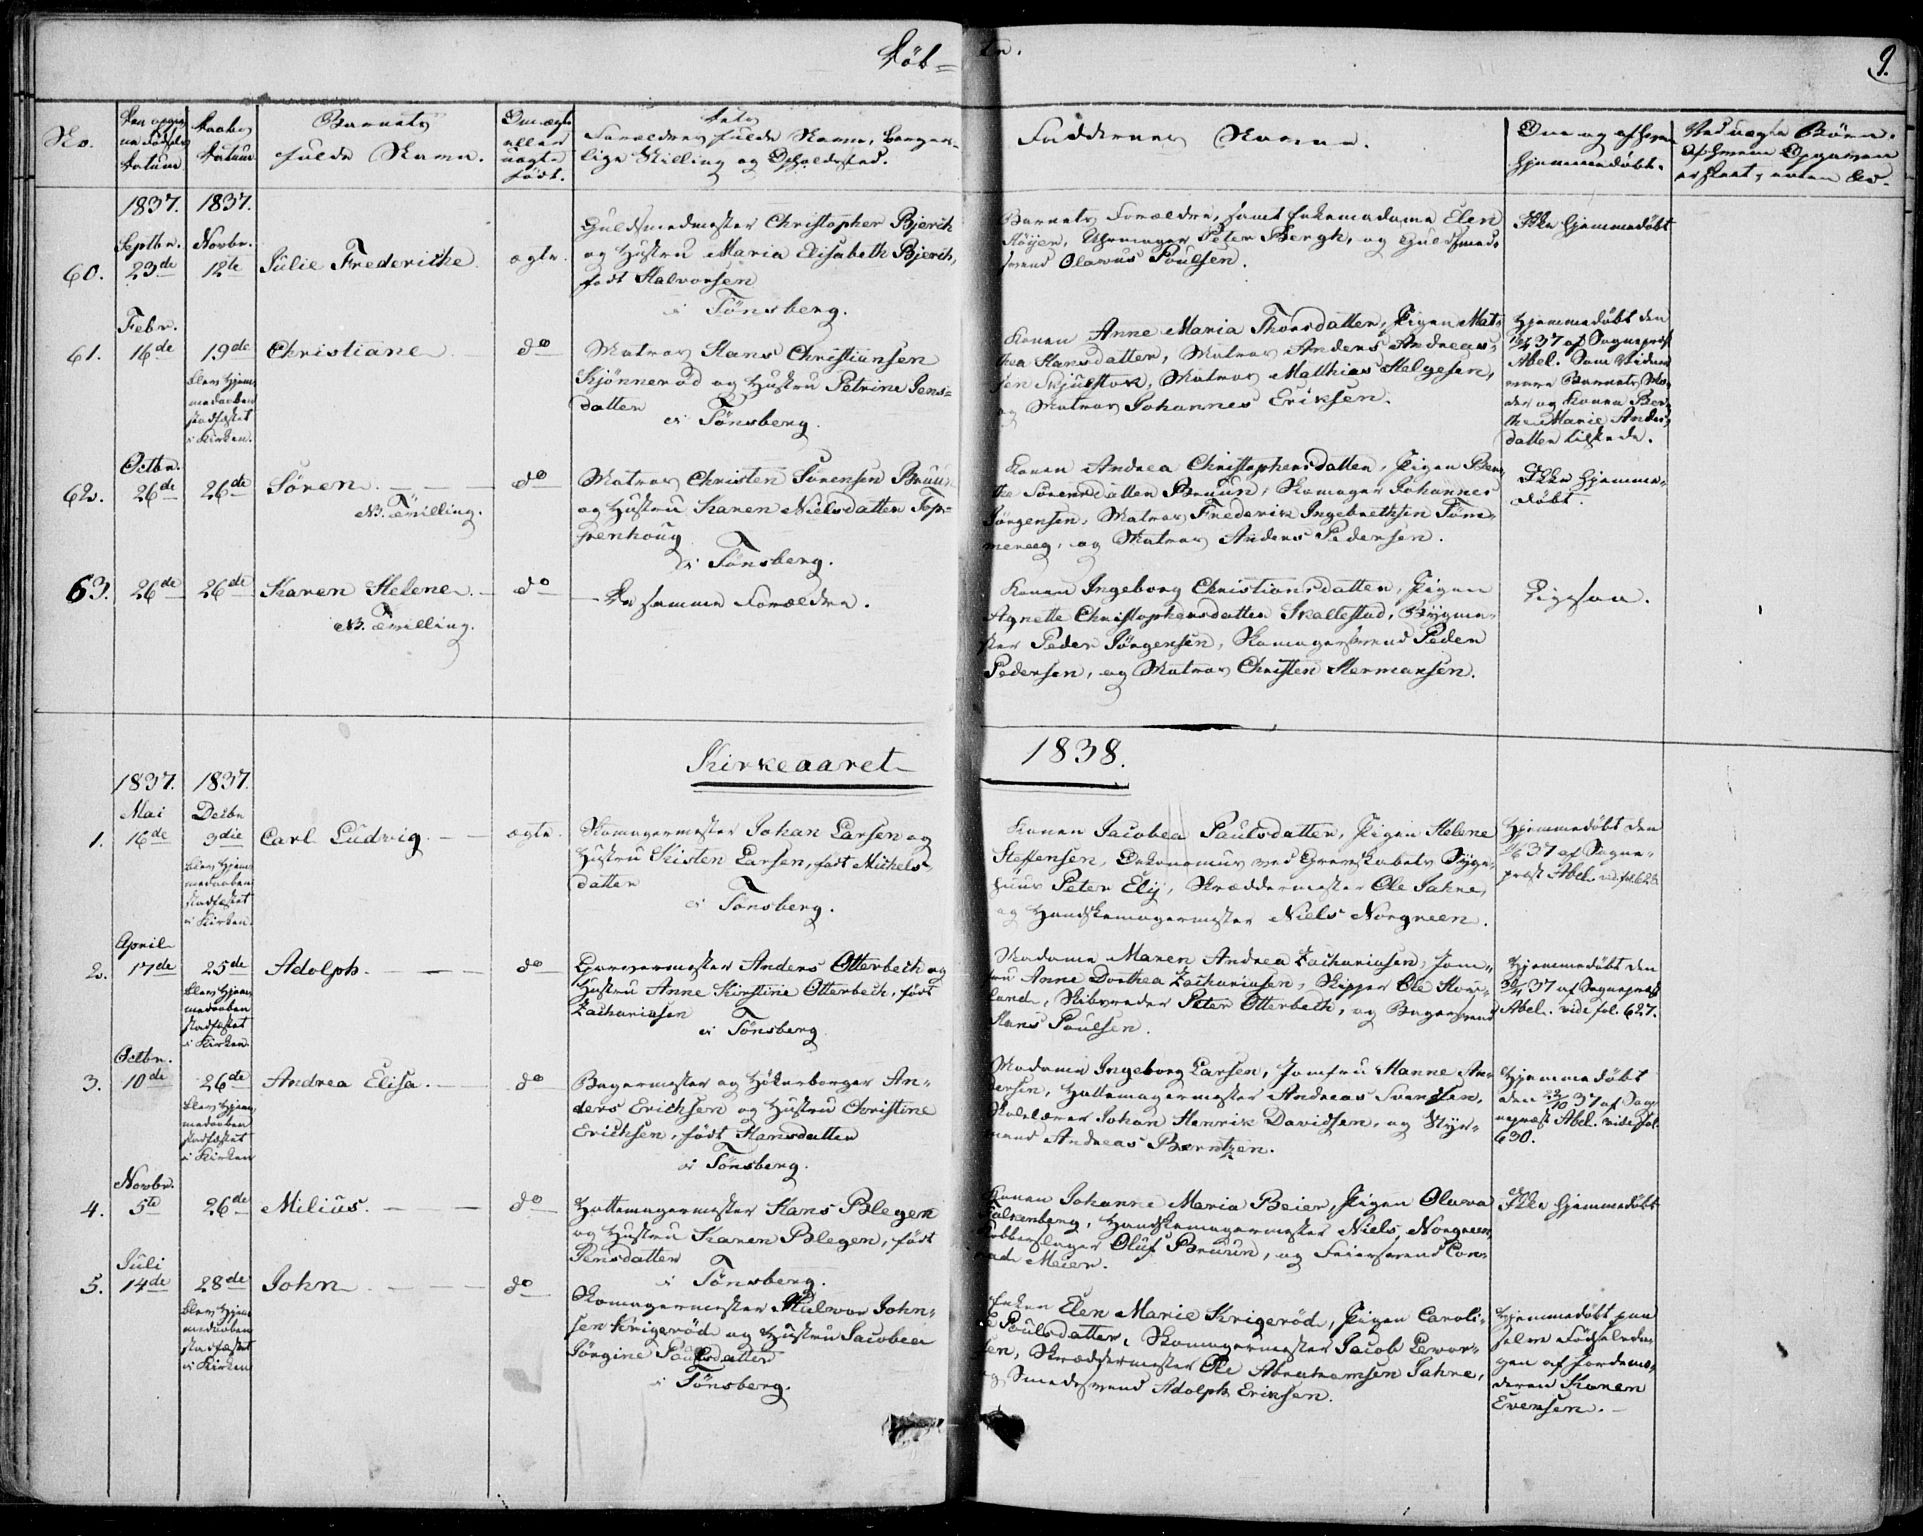 Døb=
te.
9.
No.
Den opgiv-
ne Fødsels-
Datum
Daabs
Datum
Barnets
fulde Navn.
Om ægte
eller
uægte
født.
Dets
Forældres fulde Navn, borger-
lige Stilling og Opholdssted.
Faddernes Navne.
Om og af hvem
hjemmedøbt.
Ved uægte Børn.
1837. 1837.
60.
Septbr.
23de
Novbr.
12te
Julie Fredericke
ægte.
Guldsmedmester Christopher Bjerich
og Hustru Maria Elisabeth Bjerich,
født Halvorsen
i Tönsberg.
Barnets Forældre, samt Enkemadame Elen
Höyer, Uhrmager Peter Bergh, og Guldsmed-
svend Olavus Poulsen.
Ikke hjemmedøbt
61.
Febr.
16de
19de
blev hjem-
medaaben
stadfæstet
i Kirken.
Christiane
do
Matros Hans Christiansen
Kjönneröd og Hustru Petrine Jens-
datter
i Tönsberg.
Konen Anne Maria Thorsdatter, Pigen Mat-
thea Hansdatter, Matros Anders Andreas-
sen Skjulstok, Matros Matthias Helgesen,
og Matros Johannes Eriksen.
Hjemmedøbt den
37 af Sognepræst
Abel. Som Vidner
vare Barnets Mo-
der og Konen Ber-
the Marie Anders-
datter tilstede.
62.
Octbr.
26de
26de
Sören
NB. Tvilling.
do
Matros Christen Sörensen Bruun
og Hustru Karen Nielsdatter Top-
penhoug
i Tönsberg.
Konen Andrea Christophersdatter, Pigen Ber-
the Sörensdatter Bruun, Skomager Johannes
Jörgensen, Matros Frederik Ingebrethsen Töm-
mereeg, og Matros Anders Pedersen.
Ikke hjemme-
døbt.
63.
26de
26de
Karen Helene
NB. Tvilling.
do
De samme Forældre.
Konen Ingeborg Christiansdatter, Pigen
Agnette Christophersdatter Skallestad, Bygme-
ster Peder Jörgensen, Skomagersvend Peder
Pedersen, og Matros Christen Hermansen.
Ligesaa.
Kirkeaaret
1838.
1837. 1837.
1.
Mai
16de
Decbr
3die
blev hjem-
medaaben
stadfæstet
i Kirken.
Carl Ludvig.
ægte.
Skomagermester Johan Larsen og
Hustru Kisten Larsen, født Michels-
datter
i Tönsberg.
Konen Jacobea Paulsdatter, Pigen Helene
Steffensen, Oekonomus ved Grevskabets Syge-
huus Peter Ely, Skræddermester Ole Jahre,
og Handskemagermester Niels Norgreen.
Hjemmedøbt den
37 af Sogne-
præst Abel. vid. fol. 628.
2.
April
17de
25de
blev hjem-
medaaben
stadfæstet
i Kirken.
Adolph.
do
Garvermester Anders Otterbech og
Hustru Anne Kirstine Otterbech, født
Zachariasen
i Tönsberg.
Madame Maren Andrea Zachariasen, Jom-
fru Anne Dorthea Zachariasen, Skipper Ole Hov-
land, Skibsreder Peter Otterbech, og Bagersvend
Hans Poulsen.
Hjemmedøbt den
37 af Sognepræst
Abel. vide fol. 627.
3.
Octbr.
10de
26de
blev hjem-
medaaben
stadfæstet
i Kirken
Andrea Elisa.
do
Bagermester og Høkerborger An-
ders Erichsen og Hustru Christine
Erichsen, født Hansdatter
i Tönsberg.
Madame Ingeborg Larsen, Jomfru Manne An-
dersen, Hattemagermester Andreas Svendsen,
Skolelærer Johan Henrik Davidsen, og Styr-
mand Andreas Berntzen.
Hjemmedøbt
den 22/10 37 af Sog-
nepræst Abel. vide fol.
630.
4.
Novbr.
5te
26de
Milius.
do
Hattemagermester Hans Blegen
og Hustru Karen Blegen, født
Jensdatter
i Tönsberg.
Konen Johanne Maria Beier, Pigen Olava
Falkenberg, Handskemagermester Niels Norgreen,
Kobberslager Oluf Bruun, og Feiersvend Con-
rad Meier.
Ikke hjemmedøbt
5.
Juli
14de
28de
blev hjem-
medaaben
stadfæstet
i Kirken
John
do
Skomagermester Halvor John-
sen Krigeröd og Hustru Jacobea
Jörgine Paulsdatter
i Tönsberg.
Enken Elen Marie Krigeröd, Pigen Caroli-
ne Poulsdatter, Skomagermester Jacob Levor-
sen, Skræddermester Ole Abrahamsen Jahre,
og Smedesvend Adolph Eriksen.
Hjemmedøbt paa
selve Fødselsda-
gen af Jordemo-
deren Karen
Evensen.